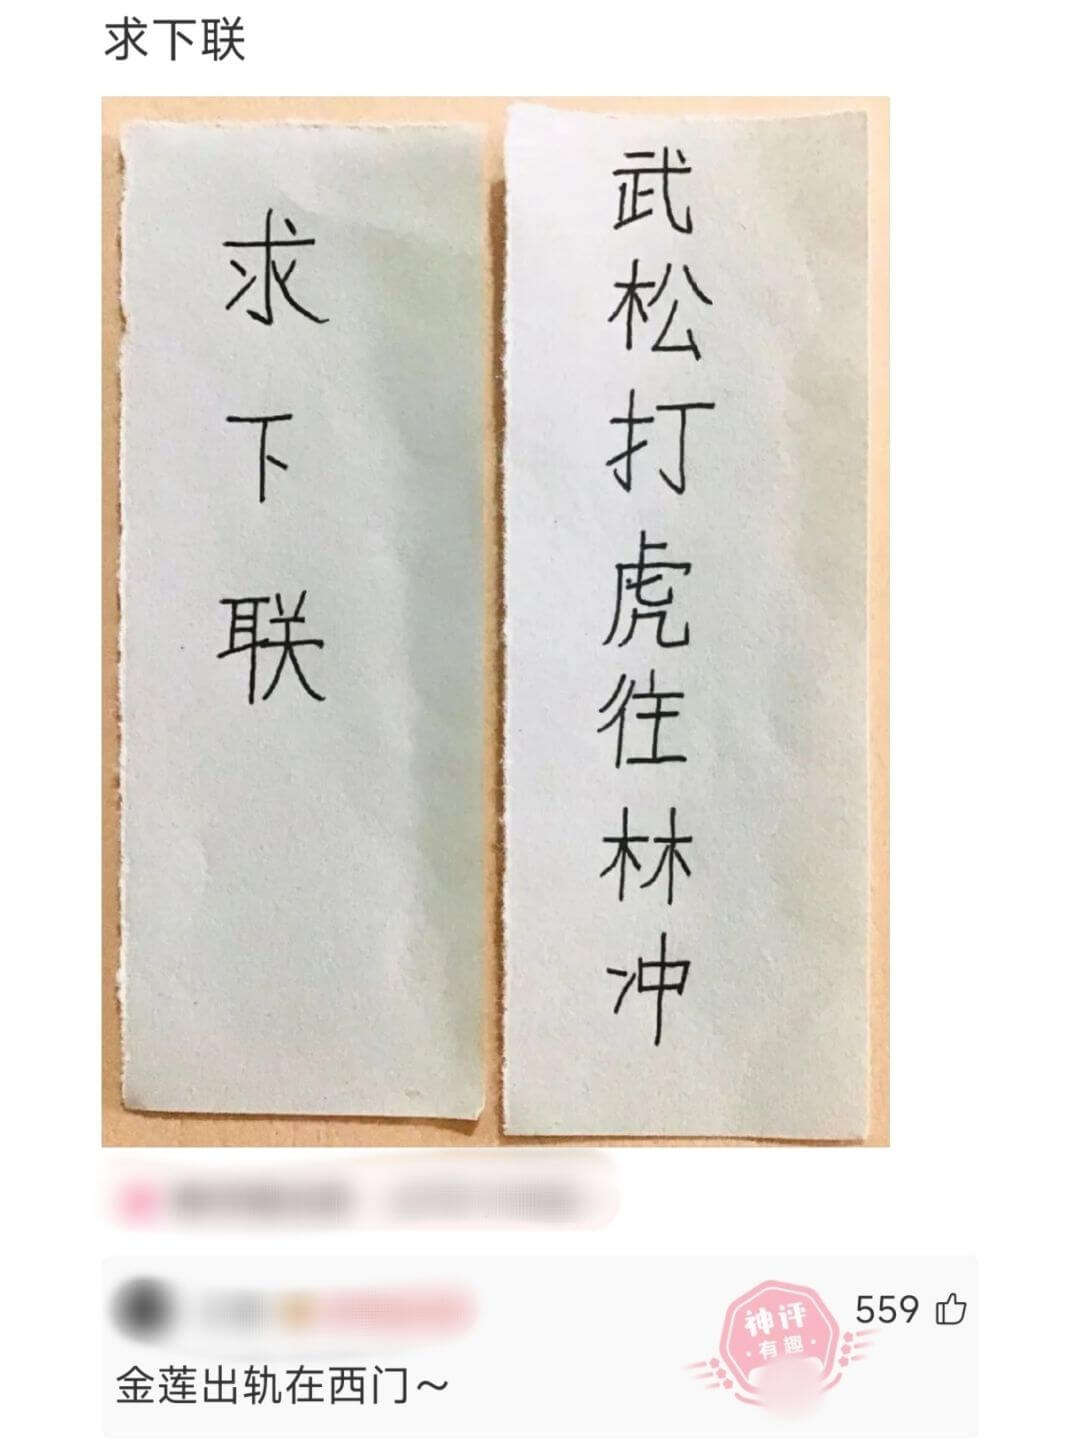 求下联
武松打虎往林冲
求下联
559
神评
·有趣·
金莲出轨在西门～